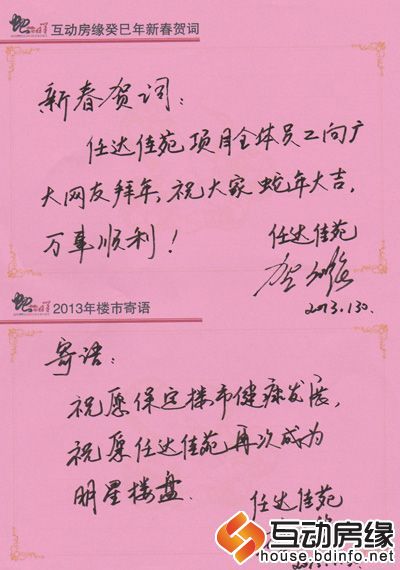 互动房缘癸巳年新春贺词
新春贺词：
任达佳苑项目全体员工向广
大网友拜年，祝大家蛇年大吉，
万事顺利！
任达佳苑
2013.1.30.
2013年楼市寄语
寄语：
祝愿保定楼市健康发展，
祝愿任达佳苑再次成为
明星楼盘．
任达佳苑
互动房缘
house.bdinfo.net